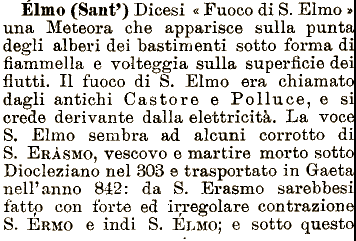 Élmo (Sant') Dicesi « Fuoco di S. Elmo »
una Meteora che apparisce sulla punta
degli alberi dei bastimenti sotto forma di
fiammella e volteggia sulla superficie dei
flutti. Il fuoco di S. Elmo era chiamato
dagli antichi Castore e Polluce, e si
crede derivante dalla elettricità. La voce
S. Elmo sembra ad alcuni corrotto di
S. ERÀSMO, vescovo e martire morto sotto
Diocleziano nel 303 e trasportato in Gaeta
nell'anno 842: da S. Erasmo sarebbesi
fatto con forte ed irregolare contrazione
S. ÉRMO e indi S. ÉLMO; e sotto questo